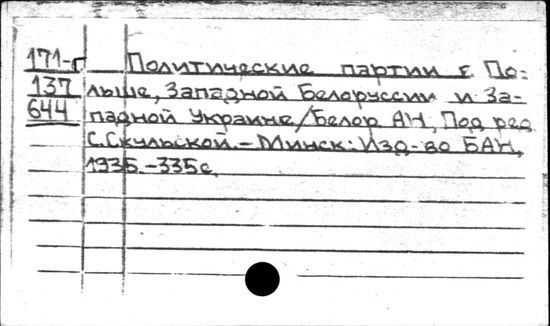 171-г Политические партии в По-
137 льше, Западной Белоруссии и За-
644 падной Украине/Белор АН, Под ред
С.Скульской – Минск: Изд-во БАН,
1935.-335с.